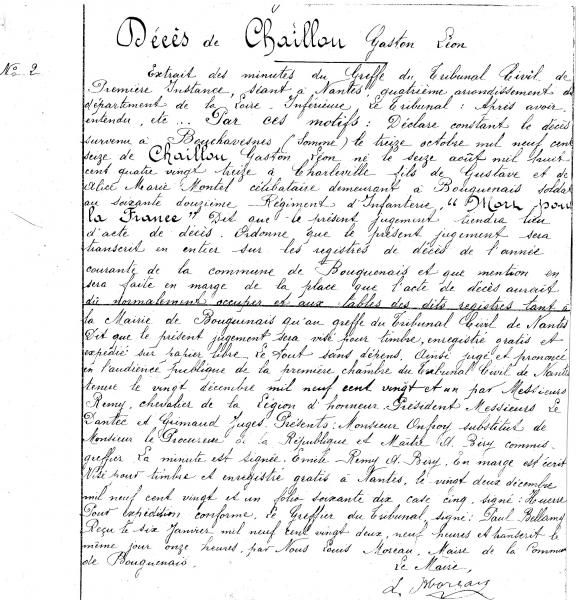 Décès de Chaillou Gaston Léon
No 2
Extrait des minutes du Greffe du Tribunal Civil de
Première Instance, séant à Nantes quatrième arrondissement du
département de la Loire-Inférieure, Le Tribunal : Après avoir
entendu, etc... Par ces motifs : Déclare constant le décès
survenu à Bouchavesnes (Somme) le treize octobre mil neuf cent
seize de Chaillou Gaston Léon né le seize août mil huit
cent quatre vingt treize à Charleville fils de Gustave et de
Alice Marie Montel célibataire demeurant à Bouguenais soldat
au soixante douzième Régiment d'Infanterie, "Mort pour
la France" Dit que le présent jugement tiendra lieu
d'acte de décès. Ordonne que le présent jugement sera
transcrit en entier sur les registres de décès de l'année
courante de la commune de Bouguenais et que mention en
sera faite en marge de la place que l'acte de décès aurait
dû normalement occuper et aux tables des dits registres tant à
la Mairie de Bouguenais qu'au greffe du Tribunal Civil de Nantes
Dit que le présent jugement sera visé pour timbre, enregistré gratis et
expédié sur papier libre Le tout sans dépens. Ainsi jugé et prononcé
en l'audience publique de la première chambre du Tribunal Civil de Nantes
tenue le vingt décembre mil neuf cent vingt et un par Messieurs
Remy, chevalier de la Légion d'honneur Président Messieurs Le
Dantec et Grimaud Juges. Présents : Monsieur Onfroy substitut de
Monsieur le Procureur de la République et Maître A. Béry commis-
greffier La minute est signée : Emile-Remy A. Béry. En marge est écrit
Visé pour timbre et enregistré gratis à Nantes, le vingt deux décembre
mil neuf cent vingt et un folio soixante dix case cinq, signé :
Pour expédition conforme. Le Greffier du Tribunal, signé : Paul Bellamy
Reçu le six Janvier mil neuf cent vingt deux, neuf heures et transcrit le
même jour onze heures, par Nous Louis Moreau, Maire de la Commune
de Bouguenais.
Le Maire,
L. Moreau